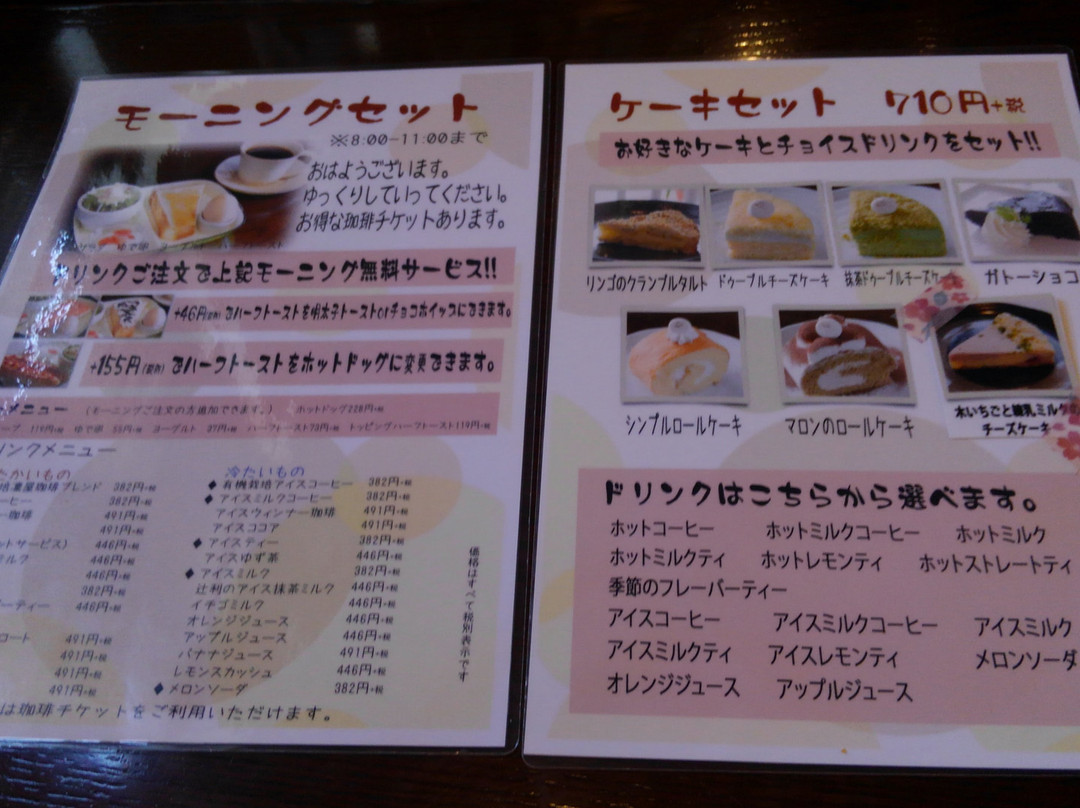 モーニングセット
※8:00-11:00まで
おはようございます。
ゆっくりしていってください。
お得な珈琲チケットあります。
ゆで卵 ヨーグルト ハーフトースト
リンクご注文で上記モーニング無料サービス!!
+46円(税別)でハーフトーストを明太子トーストorチョコホイップにできます。
+155円(税別)でハーフトーストをホットドッグに変更できます。
メニュー (モーニングご注文の方追加できます。) ホットドッグ228円+税
ープ 119円+税 ゆで卵 55円+税 ヨーグルト 37円+税 ハーフトースト73円+税 トッピングハーフトースト119円+税
リンクメニュー
たかいもの
ブレンド 382円+税
ーヒー 382円+税
ー珈琲 491円+税
491円+税
ットサービス) 446円+税
ミルク 446円+税
446円+税
382円+税
ーティー 446円+税
ロート 491円+税
491円+税
491円+税
491円+税
冷たいもの
◆有機栽培アイスコーヒー 382円+税
◆アイスミルクコーヒー 382円+税
アイスウィンナー珈琲 491円+税
アイスココア 491円+税
◆アイスティー 382円+税
アイスゆず茶 446円+税
◆アイスミルク 382円+税
辻利のアイス抹茶ミルク 446円+税
イチゴミルク 446円+税
オレンジジュース 446円+税
アップルジュース 446円+税
バナナジュース 491円+税
レモンスカッシュ 446円+税
◆メロンソーダ 382円+税
価格はすべて税別表示です
は珈琲チケットをご利用いただけます。
ケーキセット 710円+税
お好きなケーキとチョイスドリンクをセット!!
リンゴのクランブルタルト
ドゥーブルチーズケーキ
抹茶ドゥーブルチーズケーキ
ガトーショコ
シンプルロールケーキ
マロンのロールケーキ
木いちごと練乳ミルクの
チーズケーキ
ドリンクはこちらから選べます。
ホットコーヒー ホットミルクコーヒー ホットミルク
ホットミルクティ ホットレモンティ ホットストレートティ
季節のフレーバーティー
アイスコーヒー アイスミルクコーヒー アイスミルク
アイスミルクティ アイスレモンティ メロンソーダ
オレンジジュース アップルジュース